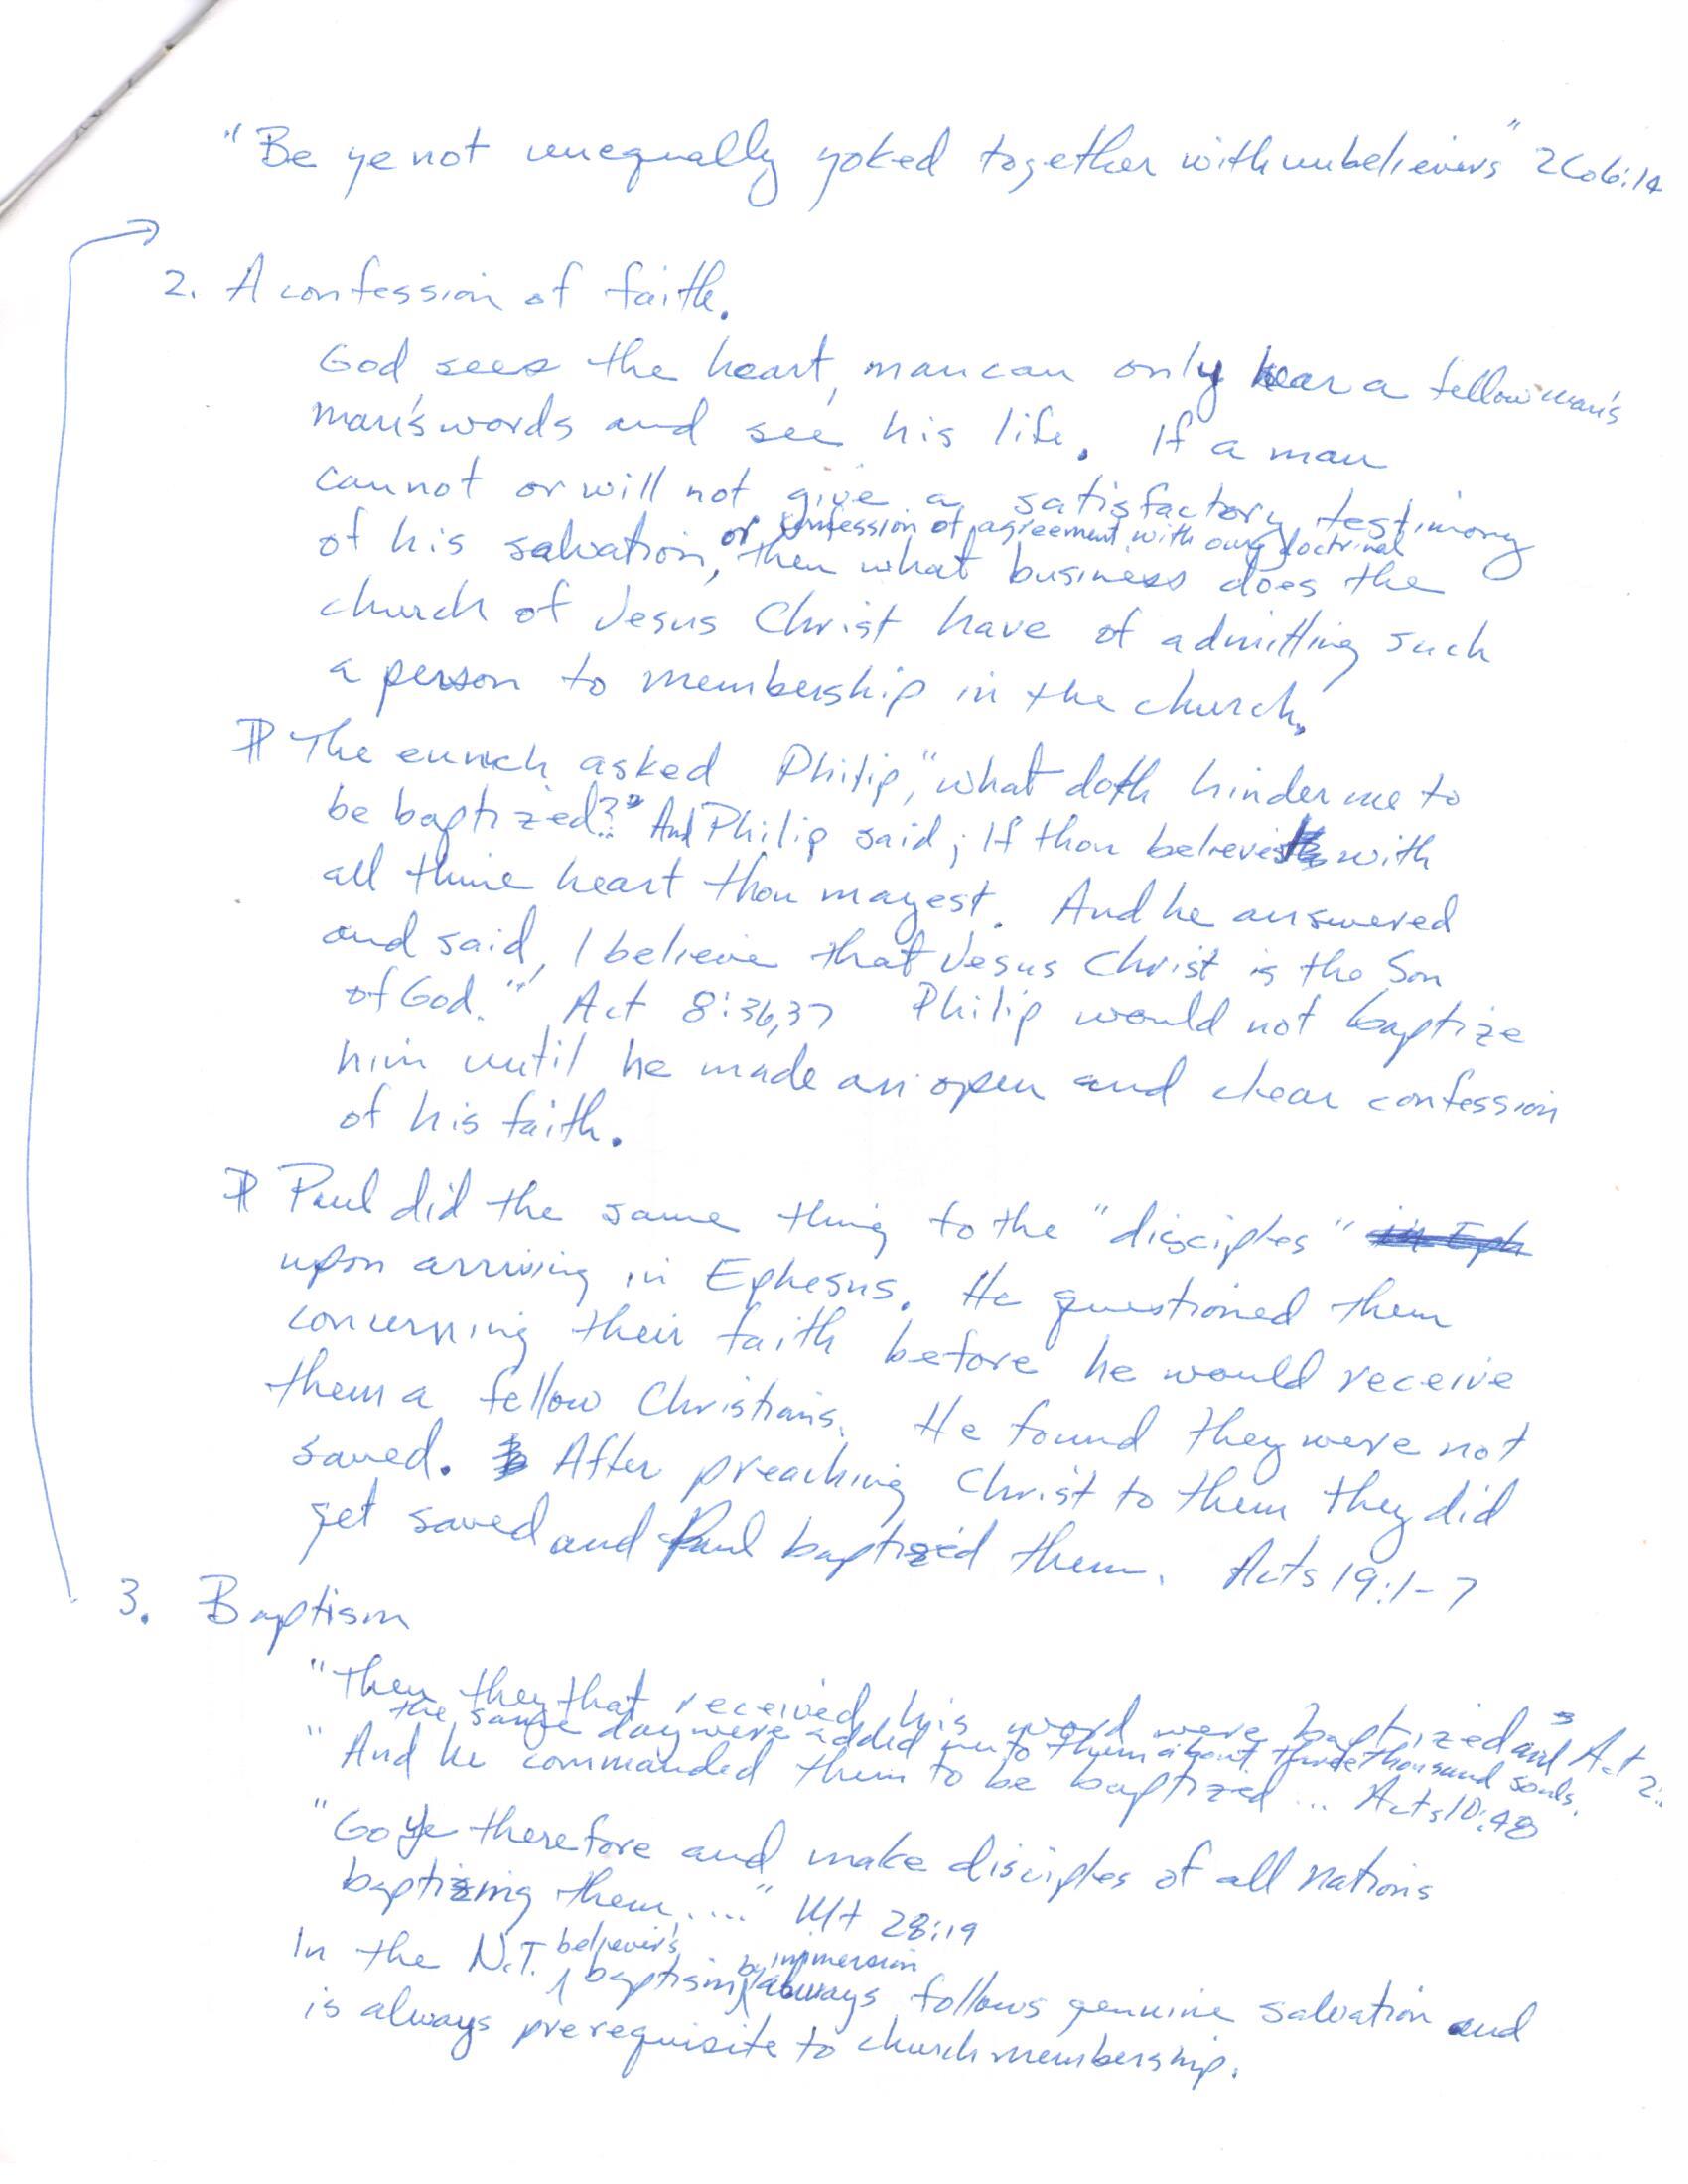 "Be ye not unequally yoked together with unbelievers" 2Co6:14
2. A confession of faith.
God sees the heart, man can only hear a fellow man's
man's words and see his life. If a man
cannot or will not give a satisfactory testimony
or confession of agreement with our doctrinal
of his salvation, then what business does the
church of Jesus Christ have of admitting such
a person to membership in the church.
The eunich asked Philip, "what doth hinder me to
be baptized?" And Philip said; If thou believest with
all thine heart thou mayest. And he answered
and said, I believe that Jesus Christ is the Son
of God." Act 8:36,37 Philip would not baptize
him until he made an open and clear confession
of his faith.
Paul did the same thing to the "disciples" in Eph
upon arriving in Ephesus. He questioned them
concerning their faith before he would receive
them a fellow Christians. He found they were not
saved. After preaching Christ to them they did
get saved and Paul baptized them. Acts 19:1-7
3. Baptism
"Then they that received his word were baptized and Act 2:
the same day were added unto them about three thousand souls.
"And he commanded them to be baptized... Acts 10:48
"Go ye therefore and make disciples of all nations
baptizing them...." Mt 28:19
believer's by immersion
In the N.T. baptism always follows genuine salvation and
is always prerequisite to church membership.